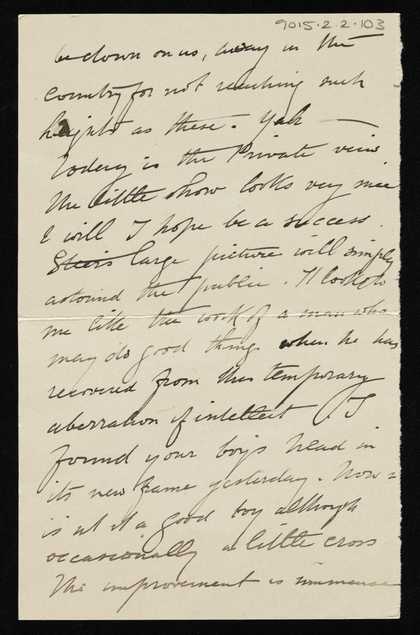 9015-2-2-103
be down on us, away in the
country for not reaching such
heights as these. Yah —
Today is the Private view
The little show looks very nice
I will I hope be a success.
Steer's large picture will simply
astound the public. It looks to
me like the work of a man who
may do good things when he has
recovered from this temporary
aberration of intellect (I
found your boys head in
its new frame yesterday. Now
is it a good boy although
occasionally a little cross
The improvement is immense